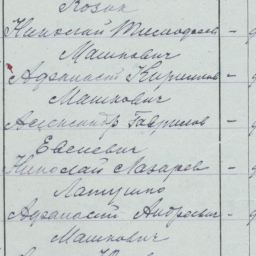 Козак
Николай Тимофеев –
Машкович
Афанасий Кирилов –
Машкович
Александр Гаврилов –
Евсеевич
Николай Лазарев –
Латушко
Афанасий Андреев –
Машкович